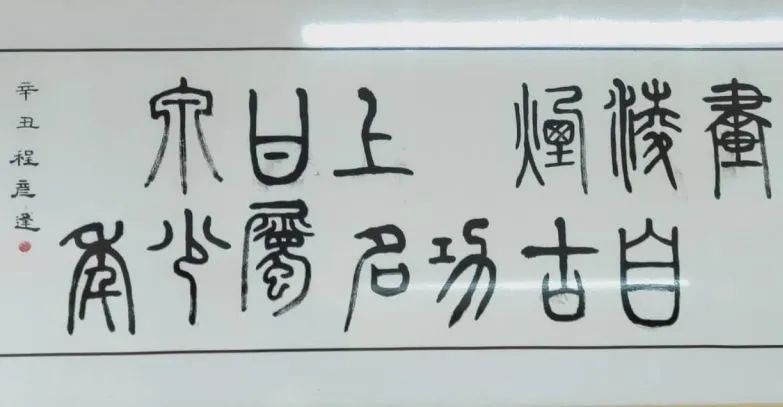 畫淩煙 上甘泉
自古功名屬少年
辛丑 程彥